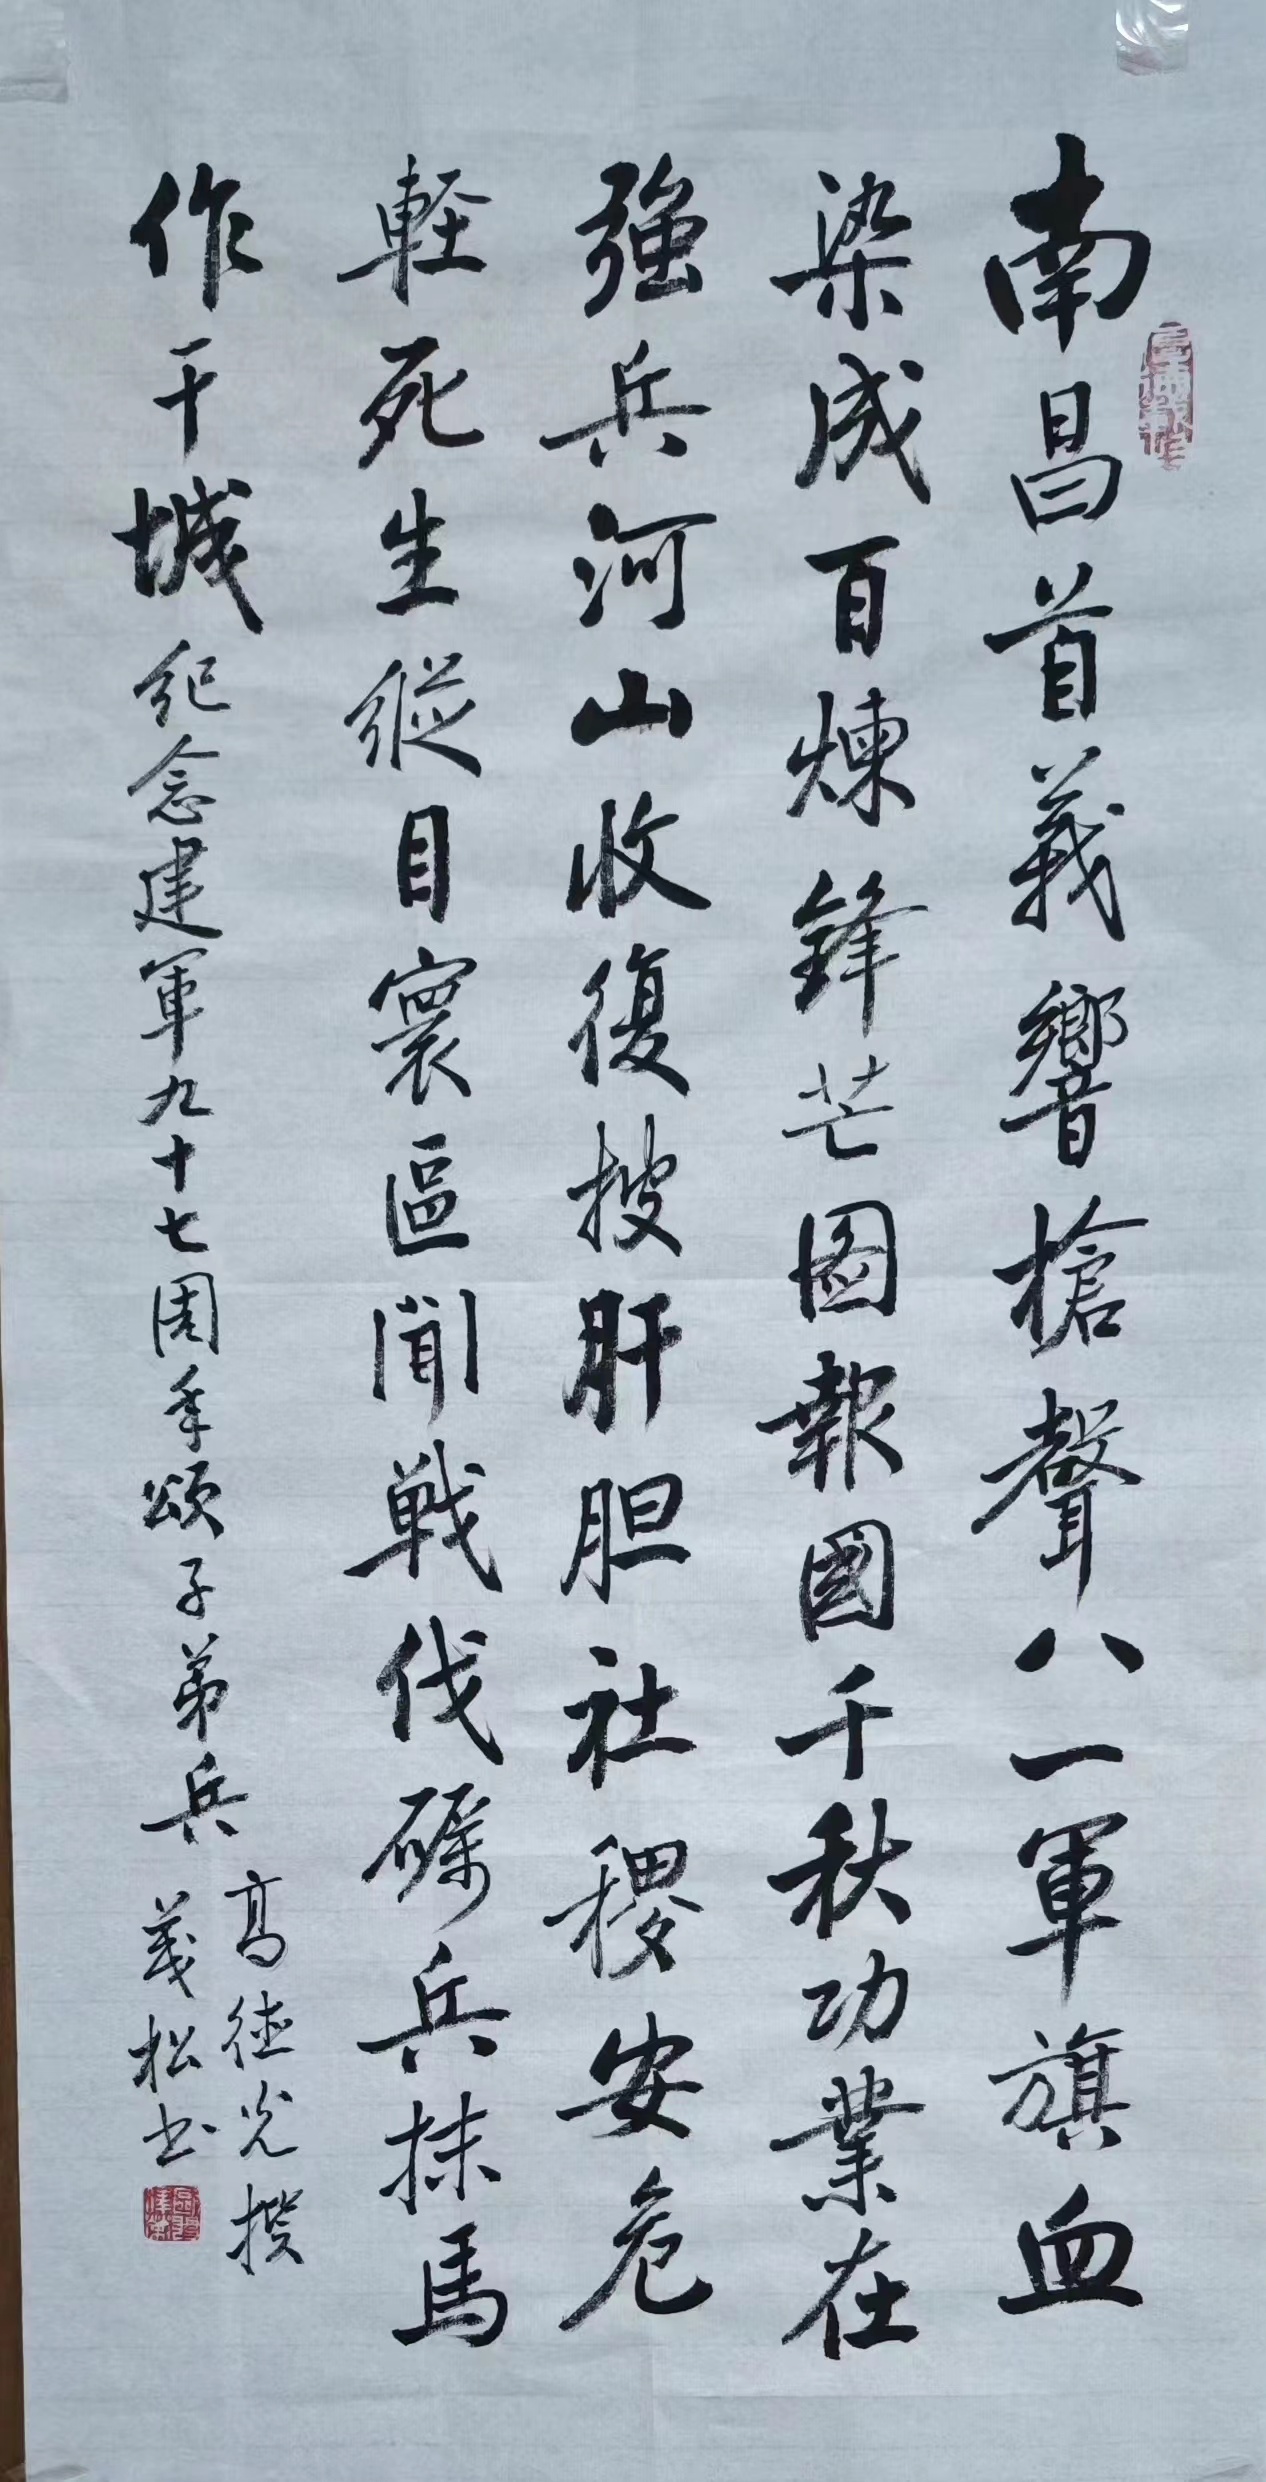 南昌首義響槍聲八一軍旗血
染成百煉鋒芒圖報國千秋功業在
強兵河山收復披肝胆社稷安危
輕死生縱目寰區聞戰伐礪兵抹馬
作干城紀念建軍九十七周年頌子弟兵
高德光撰
義松书